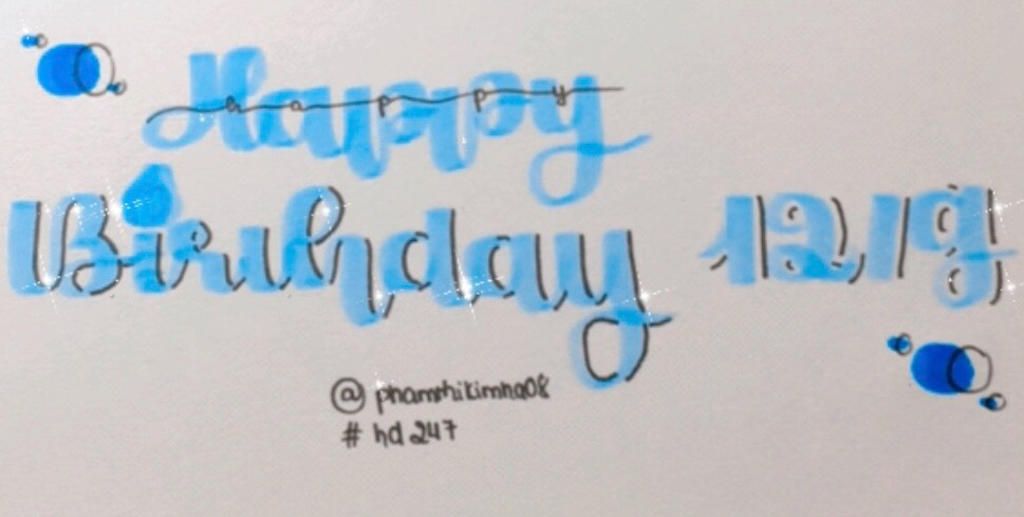 Happy
happy
Birthday 12/9
@phamthikimha08
#hd247